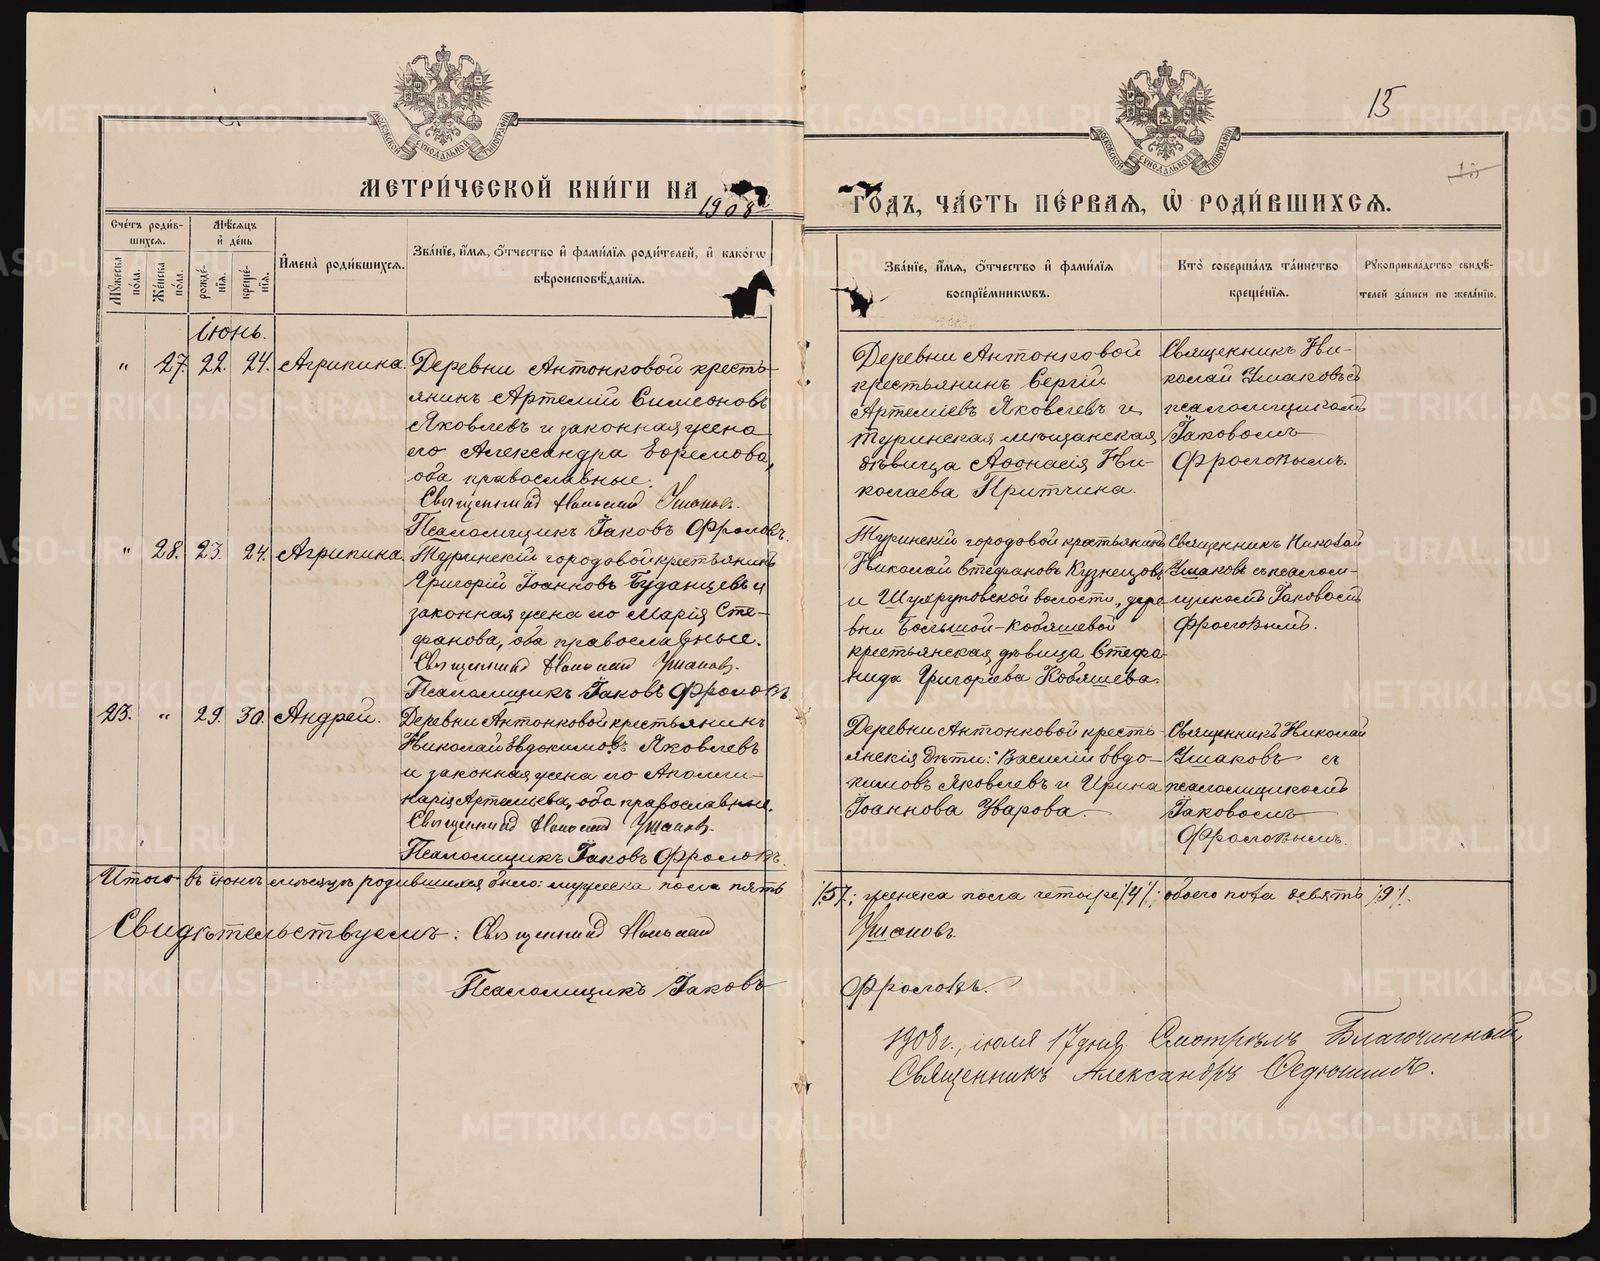 15
МЕТРИ́ЧЕСКОЙ КНИ́ГИ НА 1908 ГО́ДЪ, ЧА́СТЬ ПЕ́РВАЯ, Ѽ РОДИ́ВШИХСЯ.
Сче́тъ роди́вшихся.
Мꙋ́жеска по́ла.
Же́нска по́ла.
Мѣ́сяцъ и҆ де́нь
рожде́нїя.
креще́нїя.
И҆мена̀ роди́вшихся.
Зва́нїе, и҆́мя, ѻ҆́тчество и҆ фами́лїя роди́телей, и҆ како́гѡ
вѣроисповѣ́данїя.
Зва́нїе, и҆́мя, ѻ҆́тчество и҆ фами́лїя
воспрїе́мникѡвъ.
Кто̀ соверша́лъ та́инство
креще́нїя.
Рꙋкоприкла́дство свидѣ́-
телей за́писи по жела́нїю.
Іюнь.
" 27. 22. 24. Агрипина.
Деревни Антонковой кресть-
янинъ Артемій Симеоновъ
Яковлевъ и законная жена
его Александра Ефремова,
оба православные.
Священникъ Николай Ушаковъ.
Псаломщикъ Іаковъ Фроловъ.
Деревни Антонковой
крестьянинъ Сергій
Артеміевъ Яковлевъ и
туринская мѣщанская
дѣвица Аѳонасія Ни-
колаева Притчина.
Священникъ Ни-
колай Ушаковъ съ
псаломщикомъ
Іаковомъ
Фроловымъ.
" 28. 23. 24. Агрипина
Туринскій городовой крестьянинъ
Григорій Іоанновъ Буданцевъ и
законная жена его Марія Сте-
фанова, оба православные.
Священникъ Николай Ушаковъ.
Псаломщикъ Іаковъ Фроловъ
Туринскій городовой крестьянинъ
Николай Стефановъ Кузнецовъ
и Шухруповской волости, дере
вни Большой-Кобяшевой
крестьянская дѣвица Стефа-
нида Григорьева Кобяшева.
Священникъ Николай
Ушаковъ съ псалом-
щикомъ Іаковомъ
Фроловымъ.
23. " 29. 30. Андрей.
Деревни Антонковой крестьянинъ
Николай Евдокимовъ Яковлевъ
и законная жена его Аполли-
нарія Артемьева, оба православные.
Священникъ Николай Ушаковъ.
Псаломщикъ Іаковъ Фроловъ.
Деревни Антонковой кресть-
янскія дѣти: Василій Евдо-
кимовъ Яковлевъ и Ирина
Іоаннова Уварова.
Священникъ Николай
Ушаковъ съ
псаломщикомъ
Іаковомъ
Фроловымъ.
Итого въ іюнѣ мѣсяцѣ родившихся было: мужеска пола пять /5/.; женска пола четыре /4/.; обоего пола девять /9/.
Свидѣтельствуемъ: Священникъ Николай Ушаковъ.
Псаломщикъ Іаковъ Фроловъ.
1908 г., іюля 17 дня Смотрѣлъ Благочинный,
Священникъ Александръ Ѳедюшинъ.
METRIKI.GASO-URAL.RU